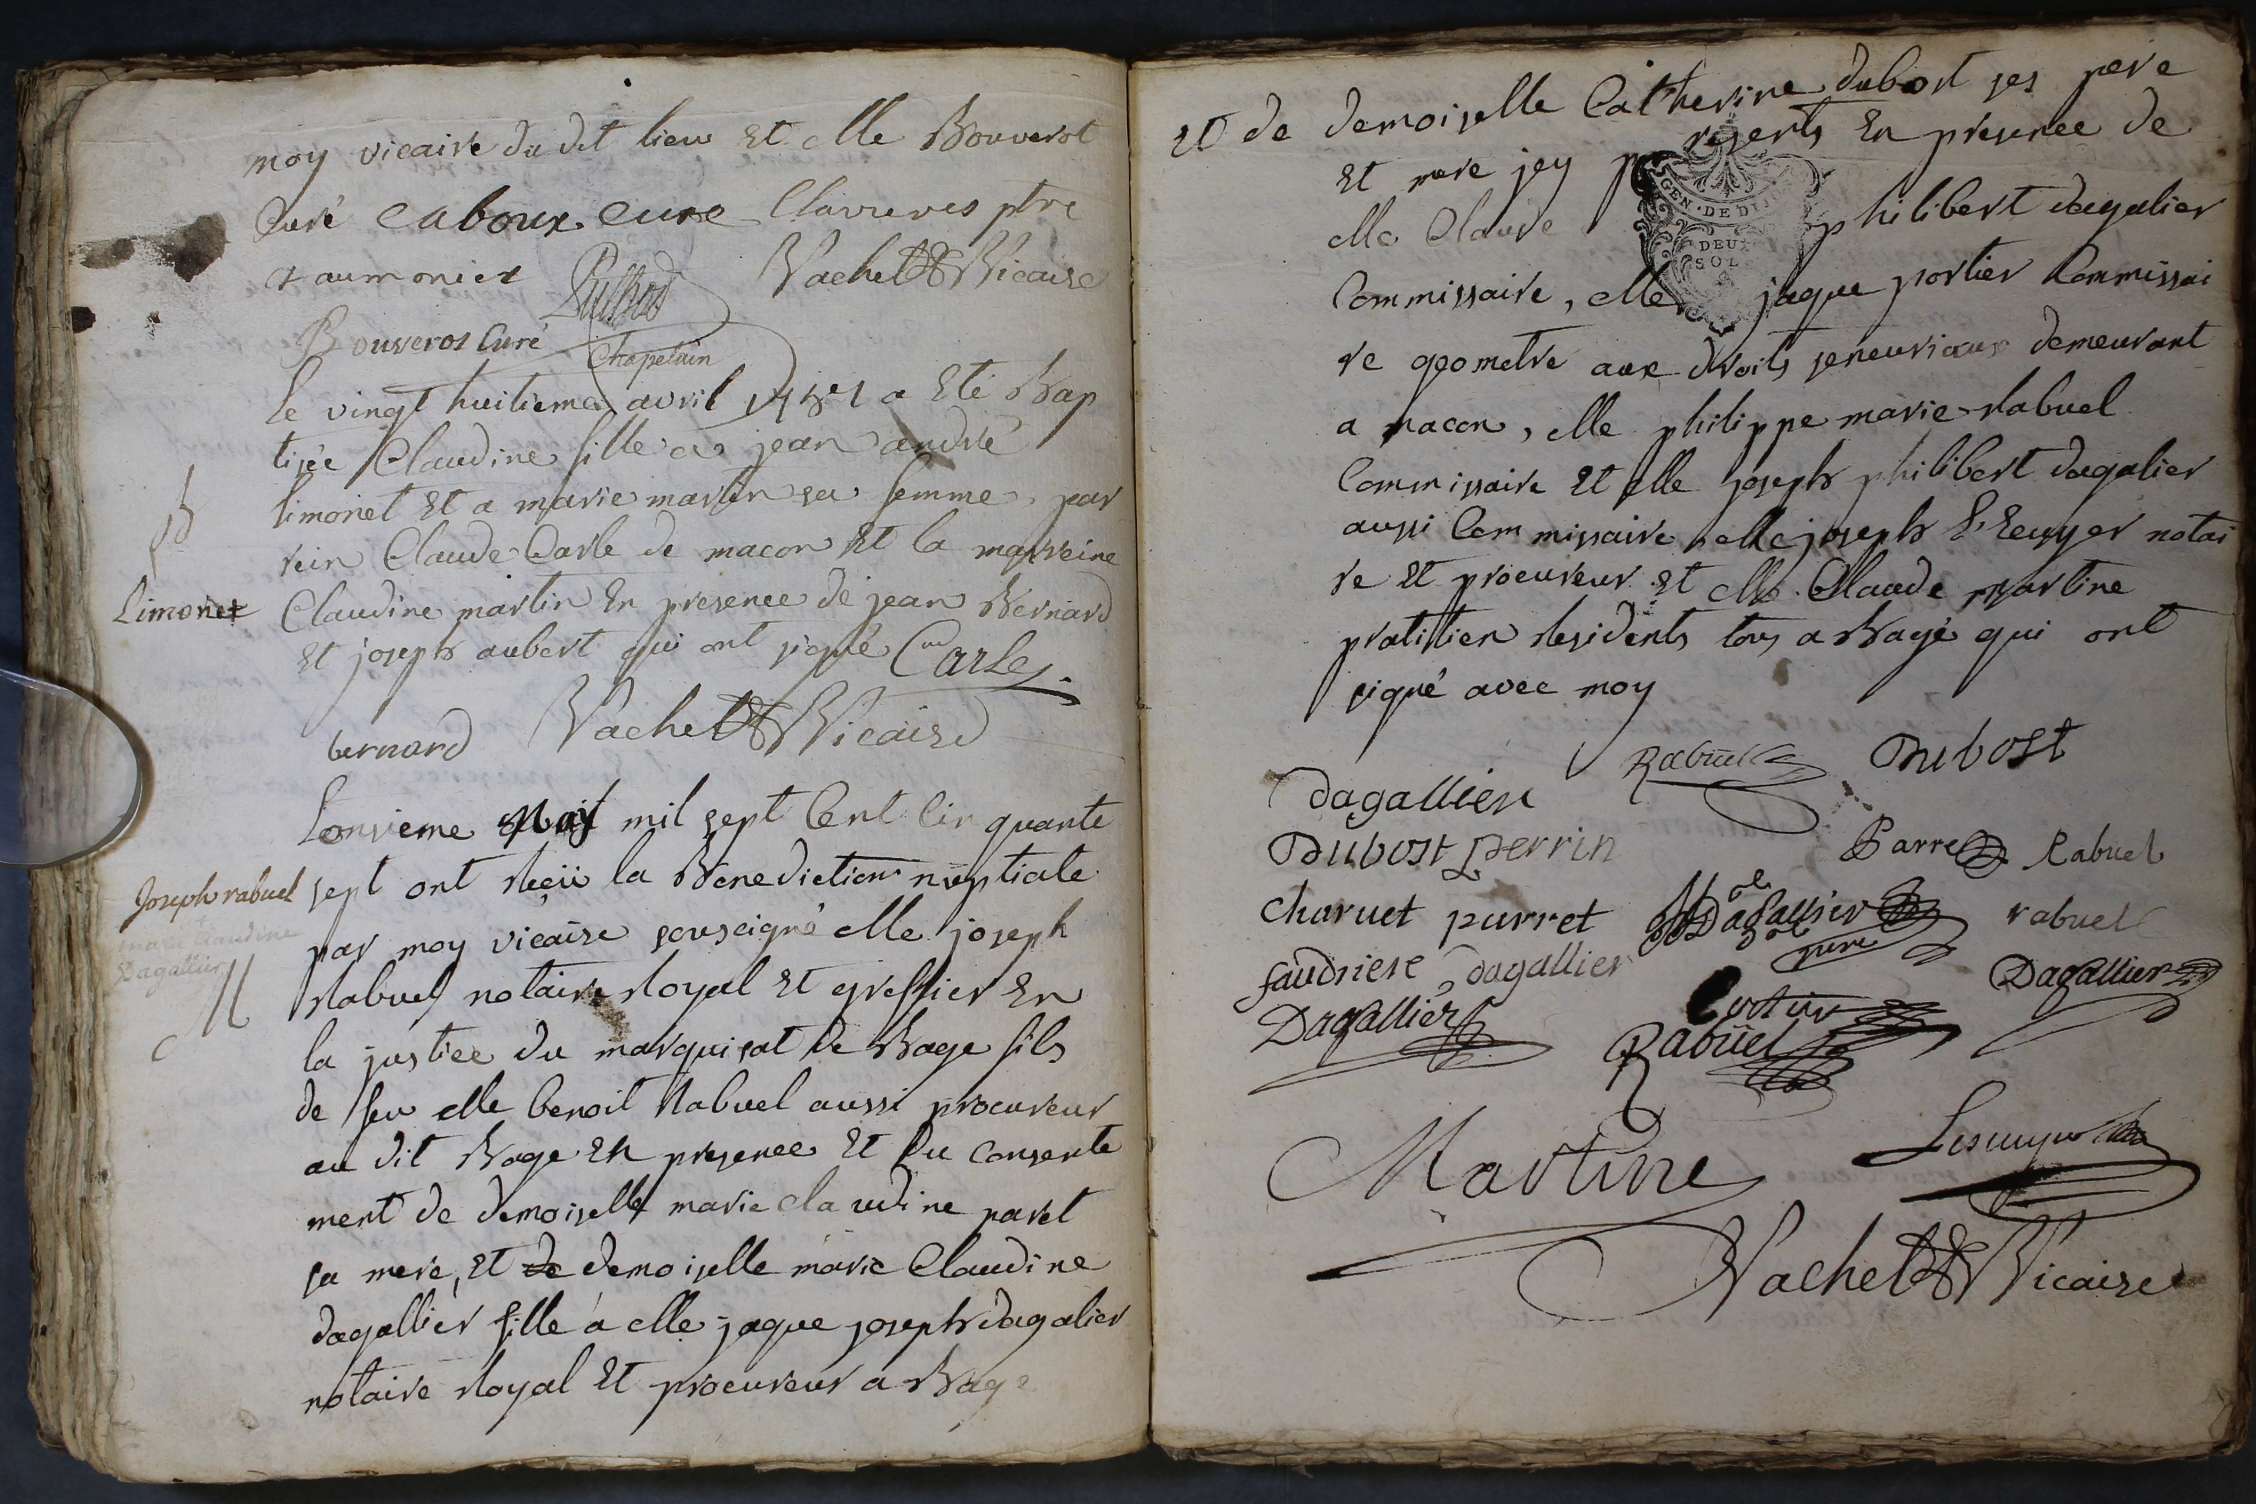 moy vicaire du dit lieu Et elle Bouverot
Curé Caboux Curé Clavieres ptre
& aumonier Vachet Vicaire
Bouverot Curé
Chapelain
le vingt huitieme avril 1757 a Eté Bap
tisée Claudine fille a jean andré
limonet Et a marie martin sa femme, par
rein Claude Carle de macon Et la marreine
Limonet
Claudine martin En presence de jean Bernard
Et joseph aubert qui ont signé Carle
bernard Vachet Vicaire
Lonzieme May mil sept Cent Cinquante
Joseph rabuel
marie Claudine
Dagallier
M
sept ont Reçü la Benediction nuptiale
par moy vicaire sousigné elle joseph
Rabuel notaire Royal Et greffier En
la justice du marquisat de Bage fils
de feu elle benoit Rabuel aussi procureur
au dit Bage En presence Et du consente
ment de demoiselle marie claudine paret
sa mere, Et de demoiselle marie Claudine
dagallier fille a elle jaque joseph dagalier
notaire Royal Et procureur a Bage
Et de demoiselle Catherine dubost ses pere
Et mere icy presents En presence de
elle Claude philibert dagalier
GEN. DE DIJ
DEUX
SOL
Commissaire, elle jaque portier Commissai
re geometre aux droits seneuriaux demeurant
a macon, elle philippe marie Rabuel
Commissaire Et elle joseph philibert dagalier
aussi Commissaire elle joseph Lescuyer notai
re Et procureur Et elle Claude martine
pratitien Residents tous a Bagé qui ont
signé avec moy
dagallier Rabuel Dubost
Dubost perrin Parret Rabuel
charuet purret Dagallier rabuel
faudriere dagallier Dagallier
Dagallier Portier
Rabüel
Martine Lescuyer
Vachet Vicaire